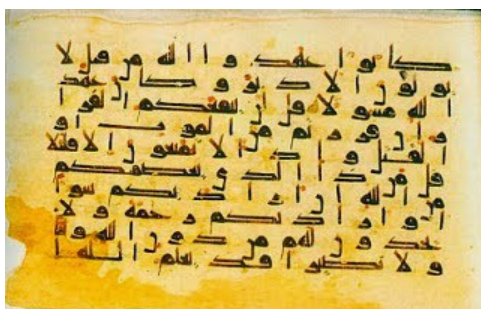 كانوا عهدوا الله من قبل لا
يولون الادبر وكان عهد
الله مسولا قل لن ينفعكم الفرا
ر ان فررتم من الموت او
القتل واذا لا تمتعون الا قليلا
قل من ذا الذي يعصمكم
من الله ان اراد بكم سوا
او اراد بكم رحمة ولا
يجدون لهم من دون الله وليا
ولا نصيرا قد يعلم الله